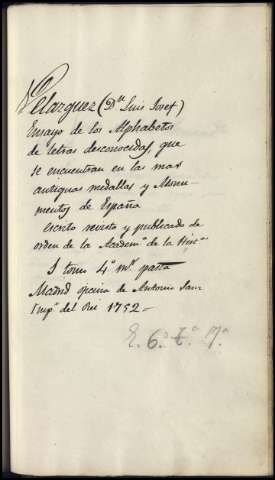 Velazquez (Dn Luis Josef)
Ensayo de los Alphabetos
de letras desconocidas, que
se encuentran en las mas
antiguas medallas y Monu-
mentos de España
escrito revisto y publicado de
orden de la Academa de la Hisa
1 tomo 4º mr pasta
Madrid oficina de Antonio Sanz
Impr del Rei 1752 —
E. 6º